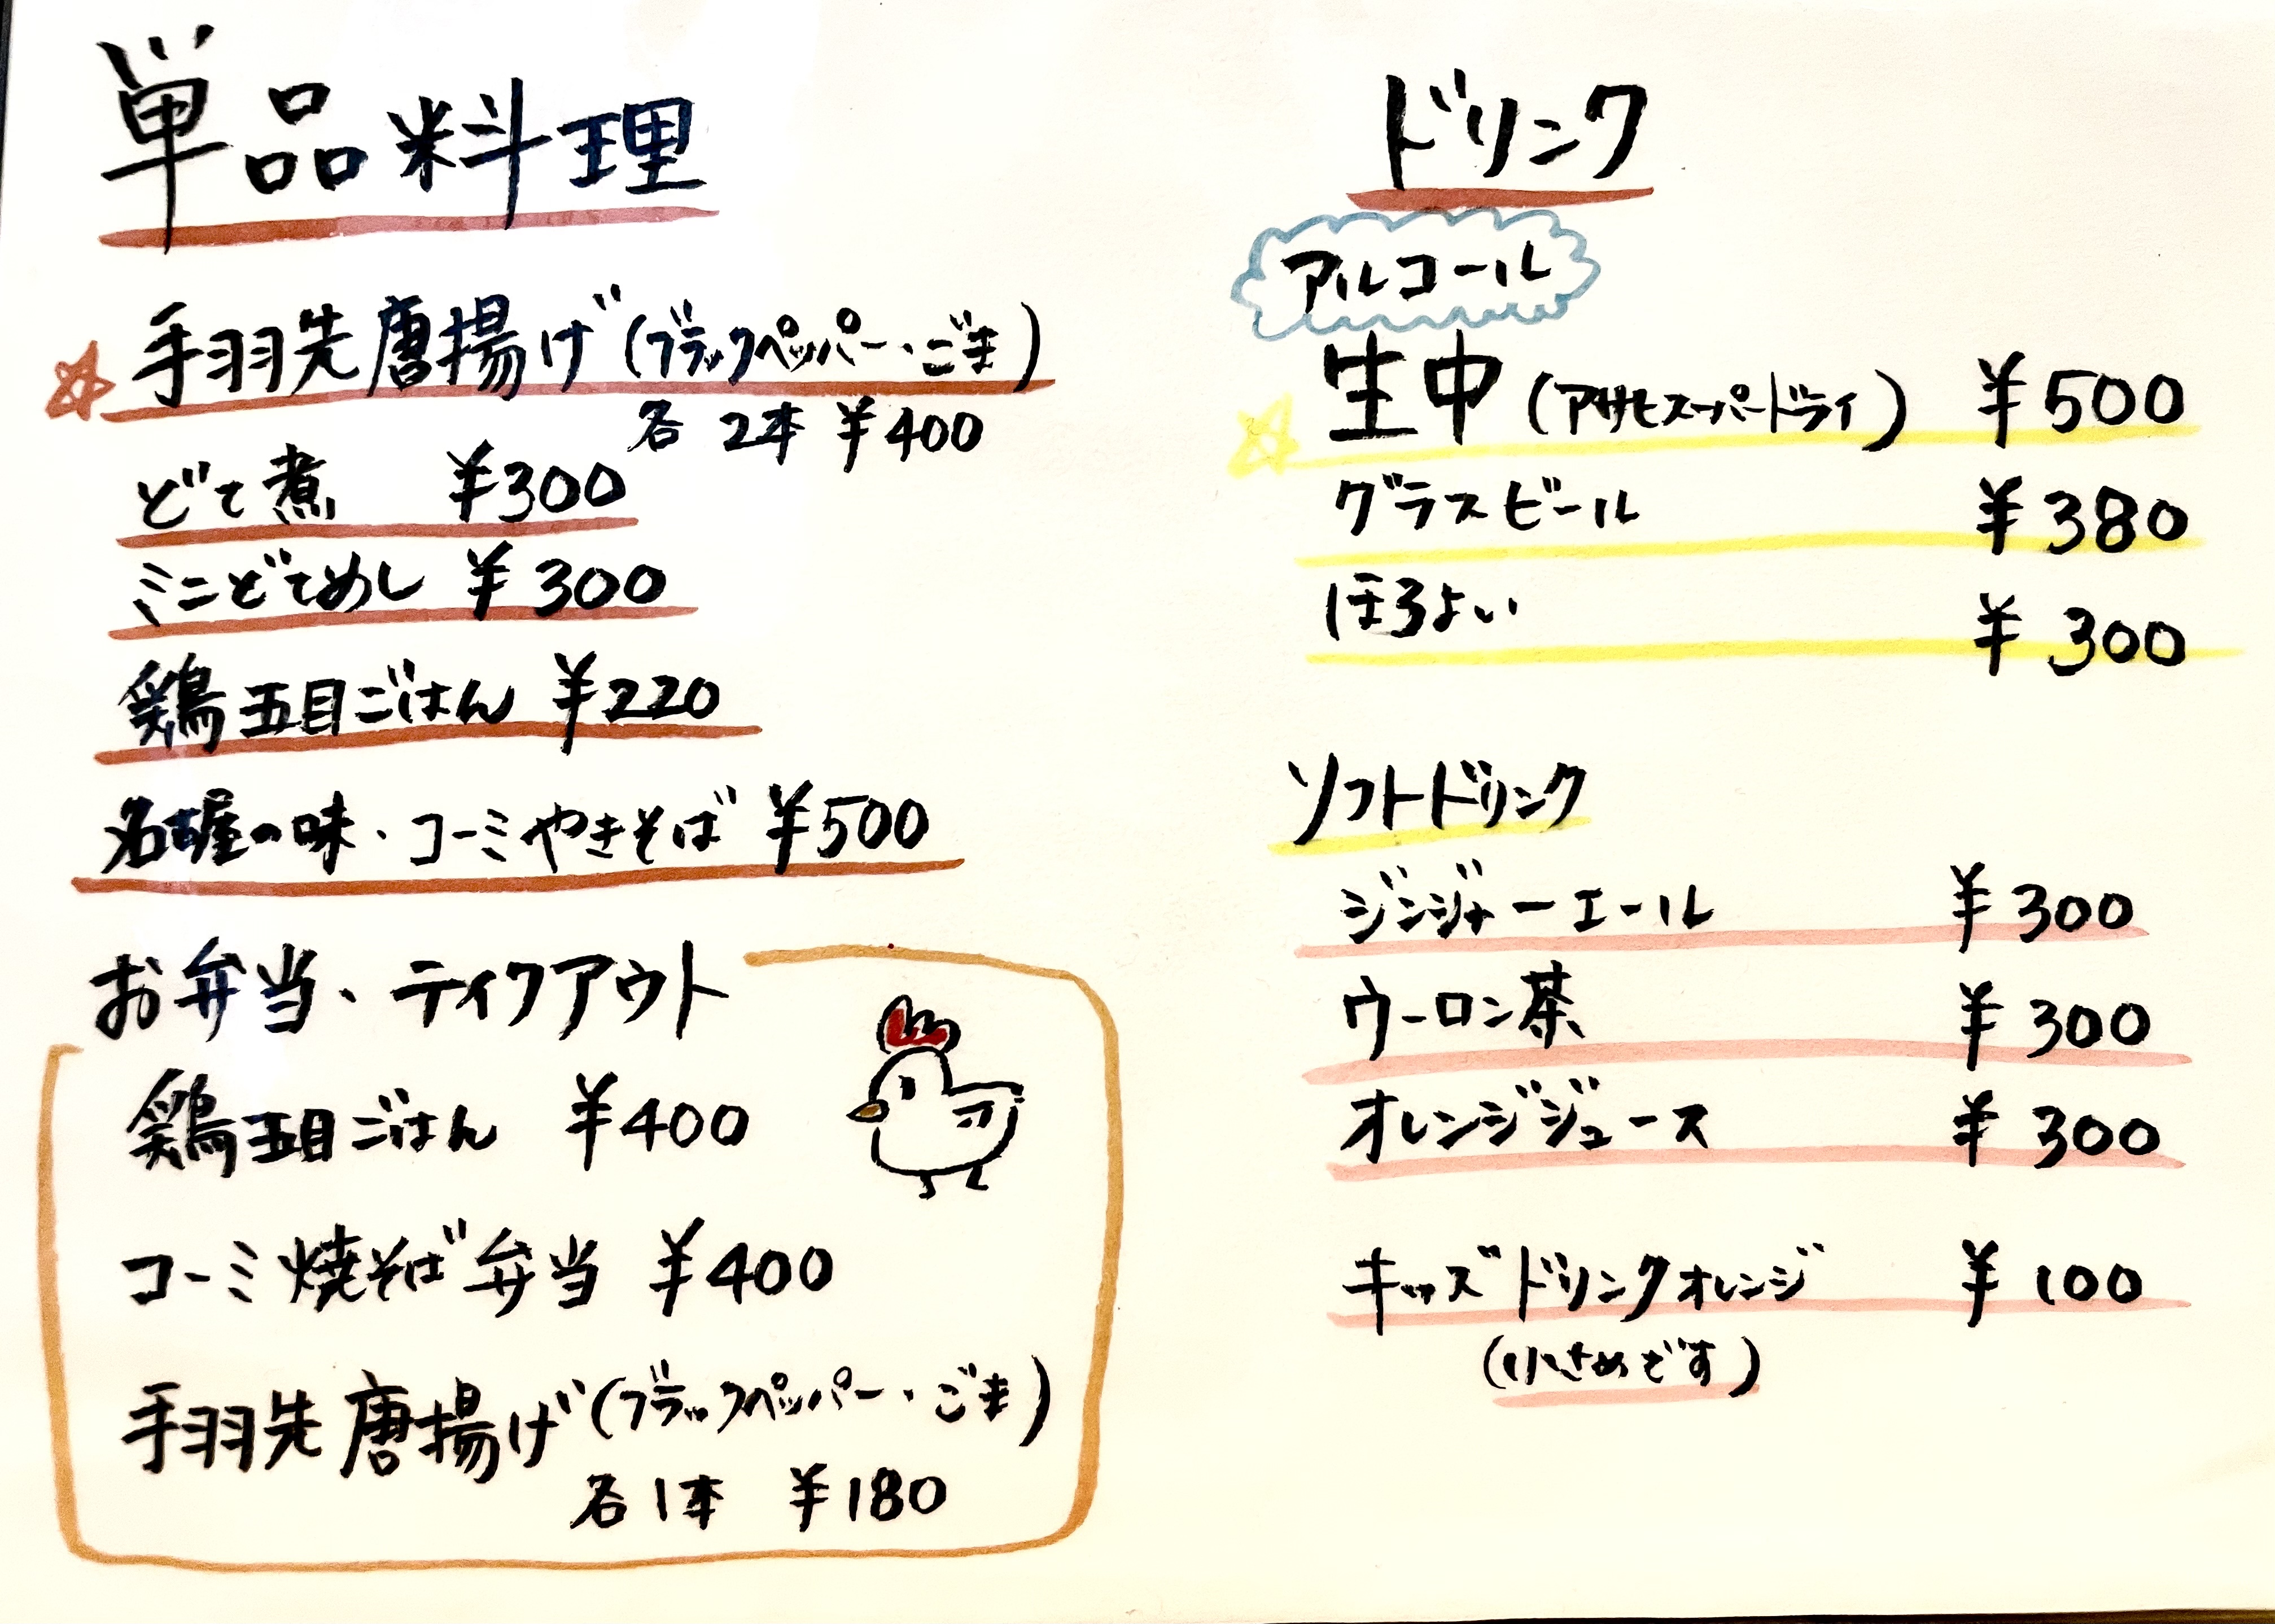 単品料理
手羽先唐揚げ(ブラックペッパー・ごま)
各 2本 ¥400
どて煮 ¥300
ミニどてめし ¥300
鶏五目ごはん ¥220
名古屋の味・コーミやきそば ¥500
お弁当、ティクアウト
鶏五目ごはん ¥400
コーミ焼そば弁当 ¥400
手羽先唐揚げ(ブラックペッパー・ごま)
各1本 ¥180
ドリンク
アルコール
生中(アサヒスーパードライ) ¥500
グラスビール ¥380
ほろよい ¥300
ソフトドリンク
ジンジャーエール ¥300
ウーロン茶 ¥300
オレンジジュース ¥300
キッズドリンクオレンジ ¥100
(小さめです)